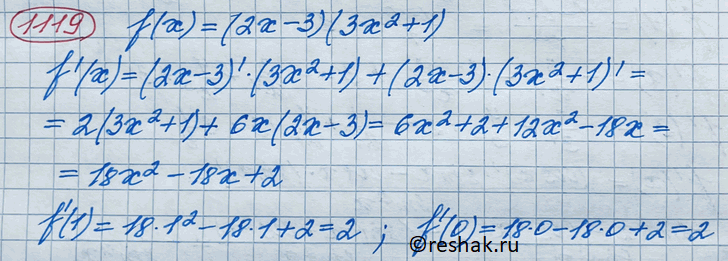 1119 f(x) = (2x-3)(3x²+1)
f'(x) = (2x-3)'·(3x²+1) + (2x-3)·(3x²+1)' =
= 2(3x²+1) + 6x(2x-3) = 6x²+2+12x²-18x =
= 18x² - 18x + 2
f'(1) = 18·1² - 18·1 + 2 = 2 ; f'(0) = 18·0 - 18·0 + 2 = 2
©reshak.ru